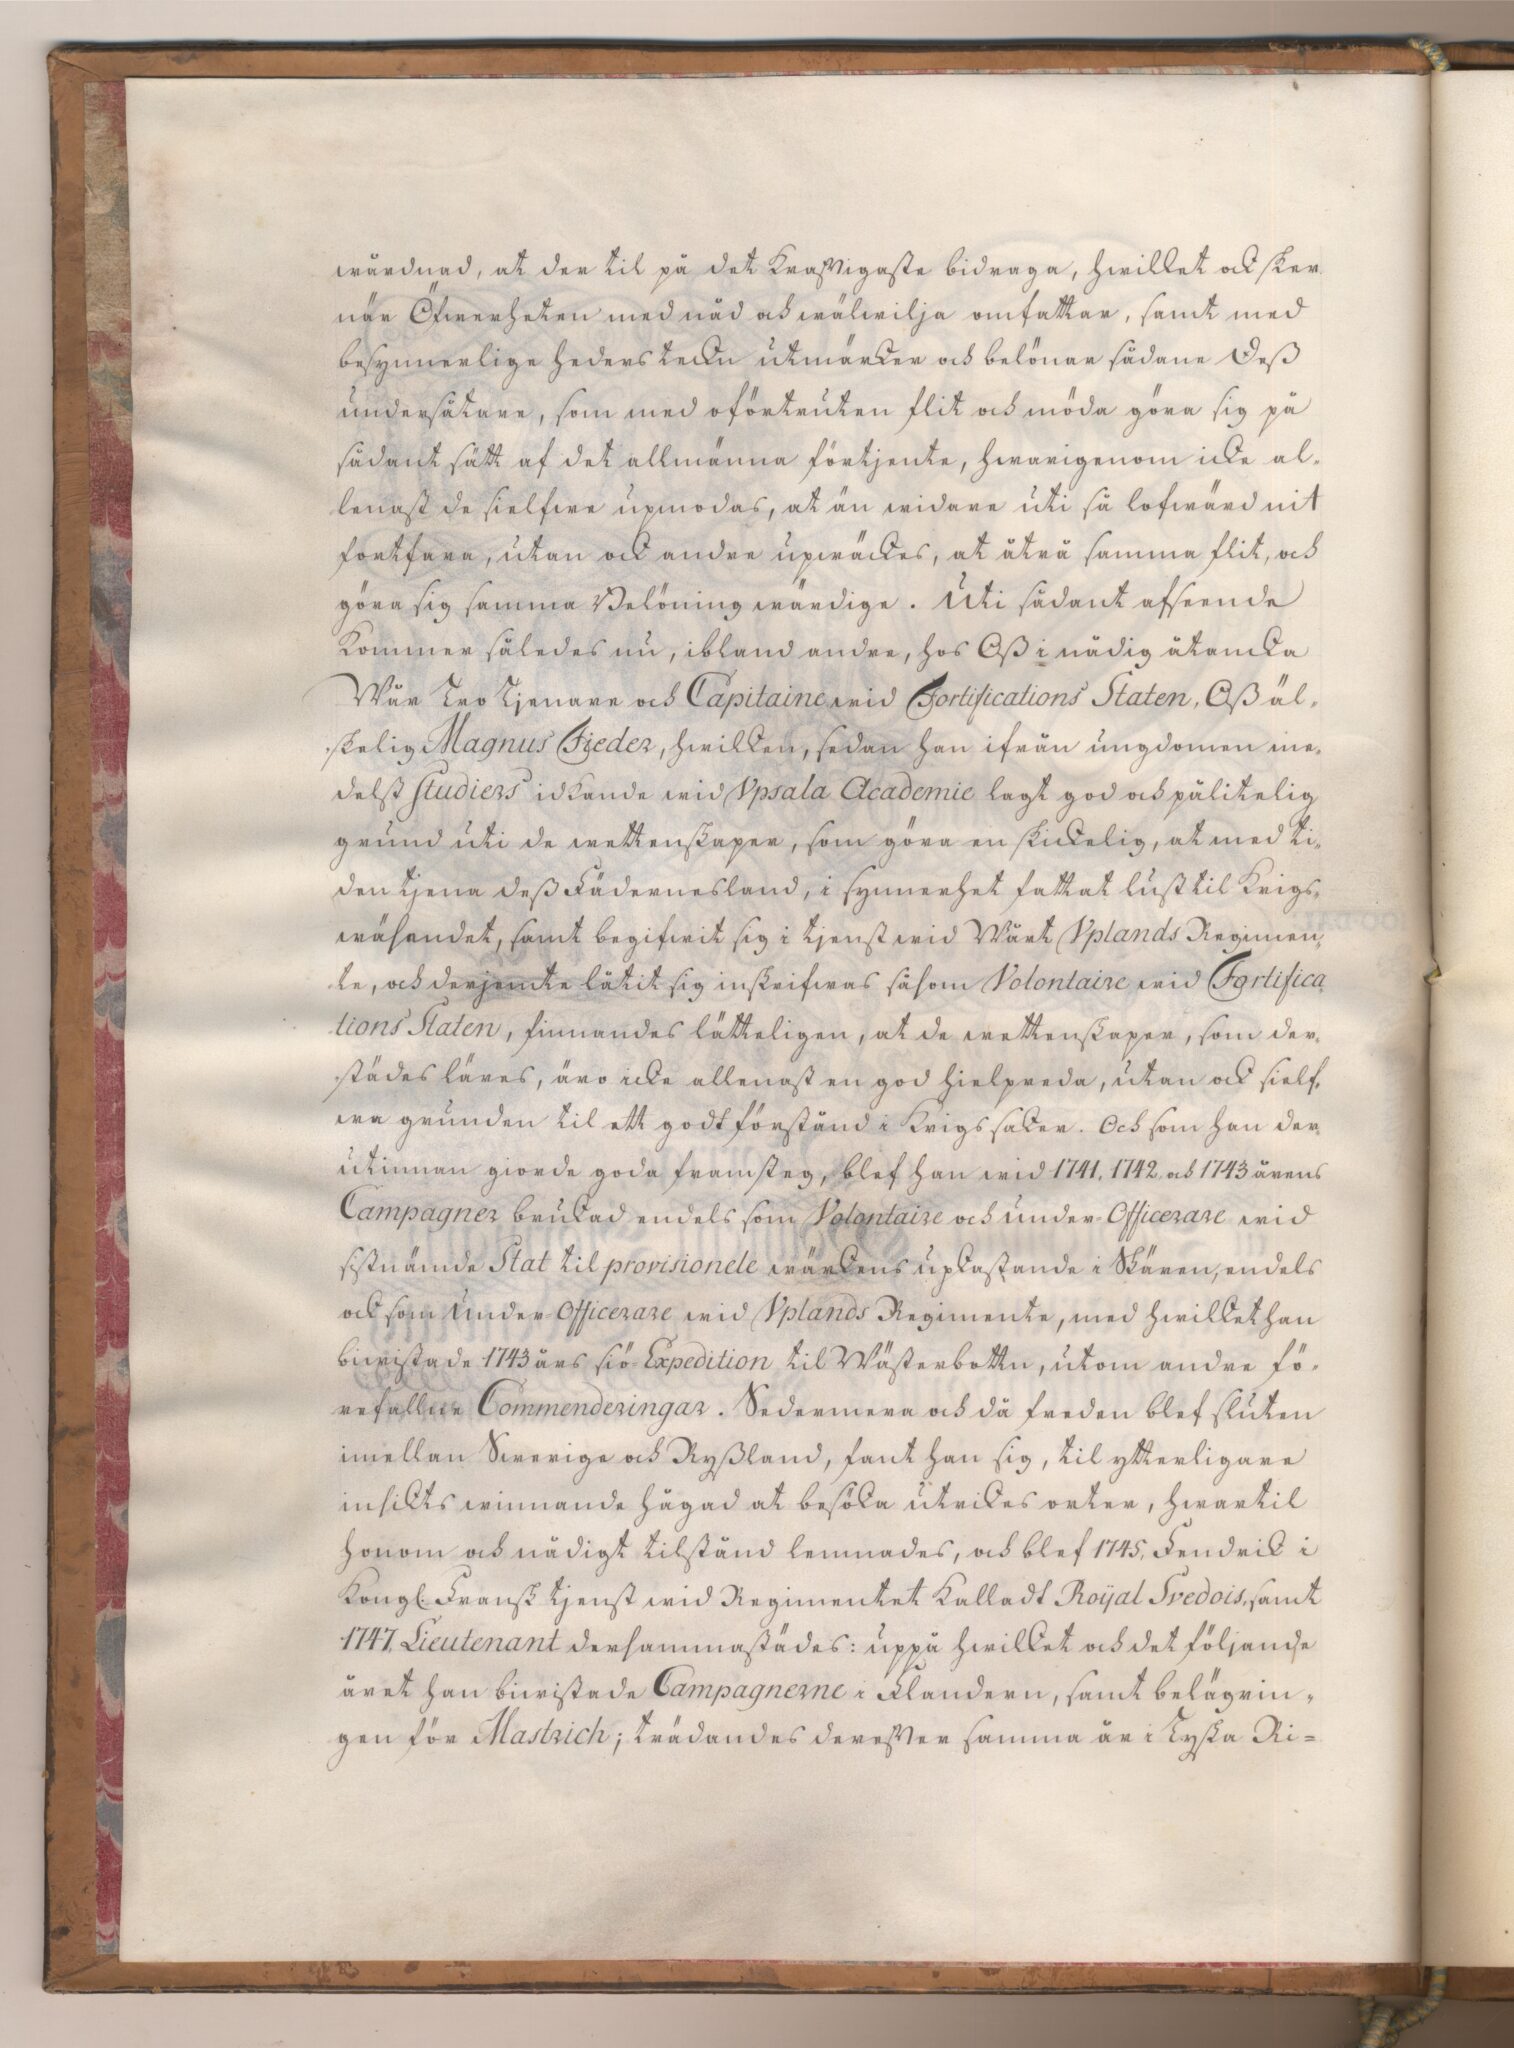 wårdnad, at der til på det kraftigaste bidraga, hwilket ock sker
när Öfwerheten med nåd och wälwilja omfattar, samt med
besynnerlige hederstekn utmärker och belönar sådane Deß
undersåtare, som med oförtruten flit och möda göra sig på
sådant sätt af det allmänna förtjente, hwarigenom icke al-
lenast de sielfwe upmodas, at än widare uti så lofwärd nit
fortfara, utan ock andre upwäckes, at åtrå samma flit, och
göra sig samma Belöning wärdige. Uti sådant afseende
kommer således nu, ibland andre, hos Oß i nådig åtancka
Wår Tro Tjenare och Capitaine wid Fortifications Staten, Oß äl-
skelig Magnus Fieder, hwilken, sedan han ifrån ungdomen me-
delst Studiers idkande wid Upsala Academie lagt god och pålitelig
grund uti de wettenskaper, som göra en skickelig, at med ti-
den tjena deß Fädernesland, i synnerhet fattat lust til Krigs-
wäsendet, samt begifwit sig i tjenst wid Wårt Uplands Regimen-
te, och derjemte låtit sig inskrifwas såsom Volontaire wid Fortifica
tions Staten, finnandes lätteligen, at de wettenskaper, som der-
städes läres, äro icke allenast en god hielpreda, utan ock sielf-
wa grunden til ett godt förstånd i Krigssaker. Och som han der-
utinnan giorde goda framsteg, blef han wid 1741, 1742 och 1743 årens
Campagner brukad endels som Volontaire och under-Officerare wid
sistnämde Stat til provisionele wärckens upkastande i Skären, endels
ock som Under-Officerare wid Uplands Regimente, med hwilket han
biwistade 1743 års siö-Expedition til Wästerbottn, utom andre fö-
refallne Commenderingar. Sedermera och då freden blef sluten
imellan Swerige och Ryßland, fant han sig, til ytterligare
insikts winnande hågad at besöka utrikes orter, hwartil
honom och nådigt tilstånd lemnades, och blef 1745, Fendrick i
Kongl. Fransk tjenst wid Regimentet kalladt Roÿal Svedois, samt
1747. Lieutenant dersammastädes: uppå hwilket och det följande
året han biwistade Campagnerne i Flandern, samt belägrin-
gen för Mastrich; trädandes derefter samma år i Tyska Ri-